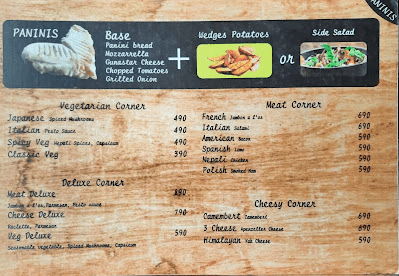 PANINIS
PANINIS
Base
Panini bread
Mozzarella
Gunastar Cheese
Chopped Tomatoes
Grilled Onion
+
Wedges Potatoes
or
Side Salad
Vegetarian Corner
Japanese Spiced Mushrooms 490
Italian Pesto Sauce 490
Spicy Veg Nepali Spices, Capsicum 490
Classic Veg 390
Deluxe Corner
Meat Deluxe 890
Jambon a l'os, Parmesan, Pesto sauce
Cheese Deluxe 790
Raclette, Parmesan
Veg Deluxe 590
Seasonable vegetable, Spiced Mushrooms, Capsicum
Meat Corner
French Jambon a l'os 690
Italian Salami 690
American Bacon 590
Spanish 590
Nepali Chicken 590
Polish Smoked Ham 590
Cheesy Corner
Camembert Camembert 690
3 Cheese Appenzeller Cheese 590
Himalayan Yak Cheese 590